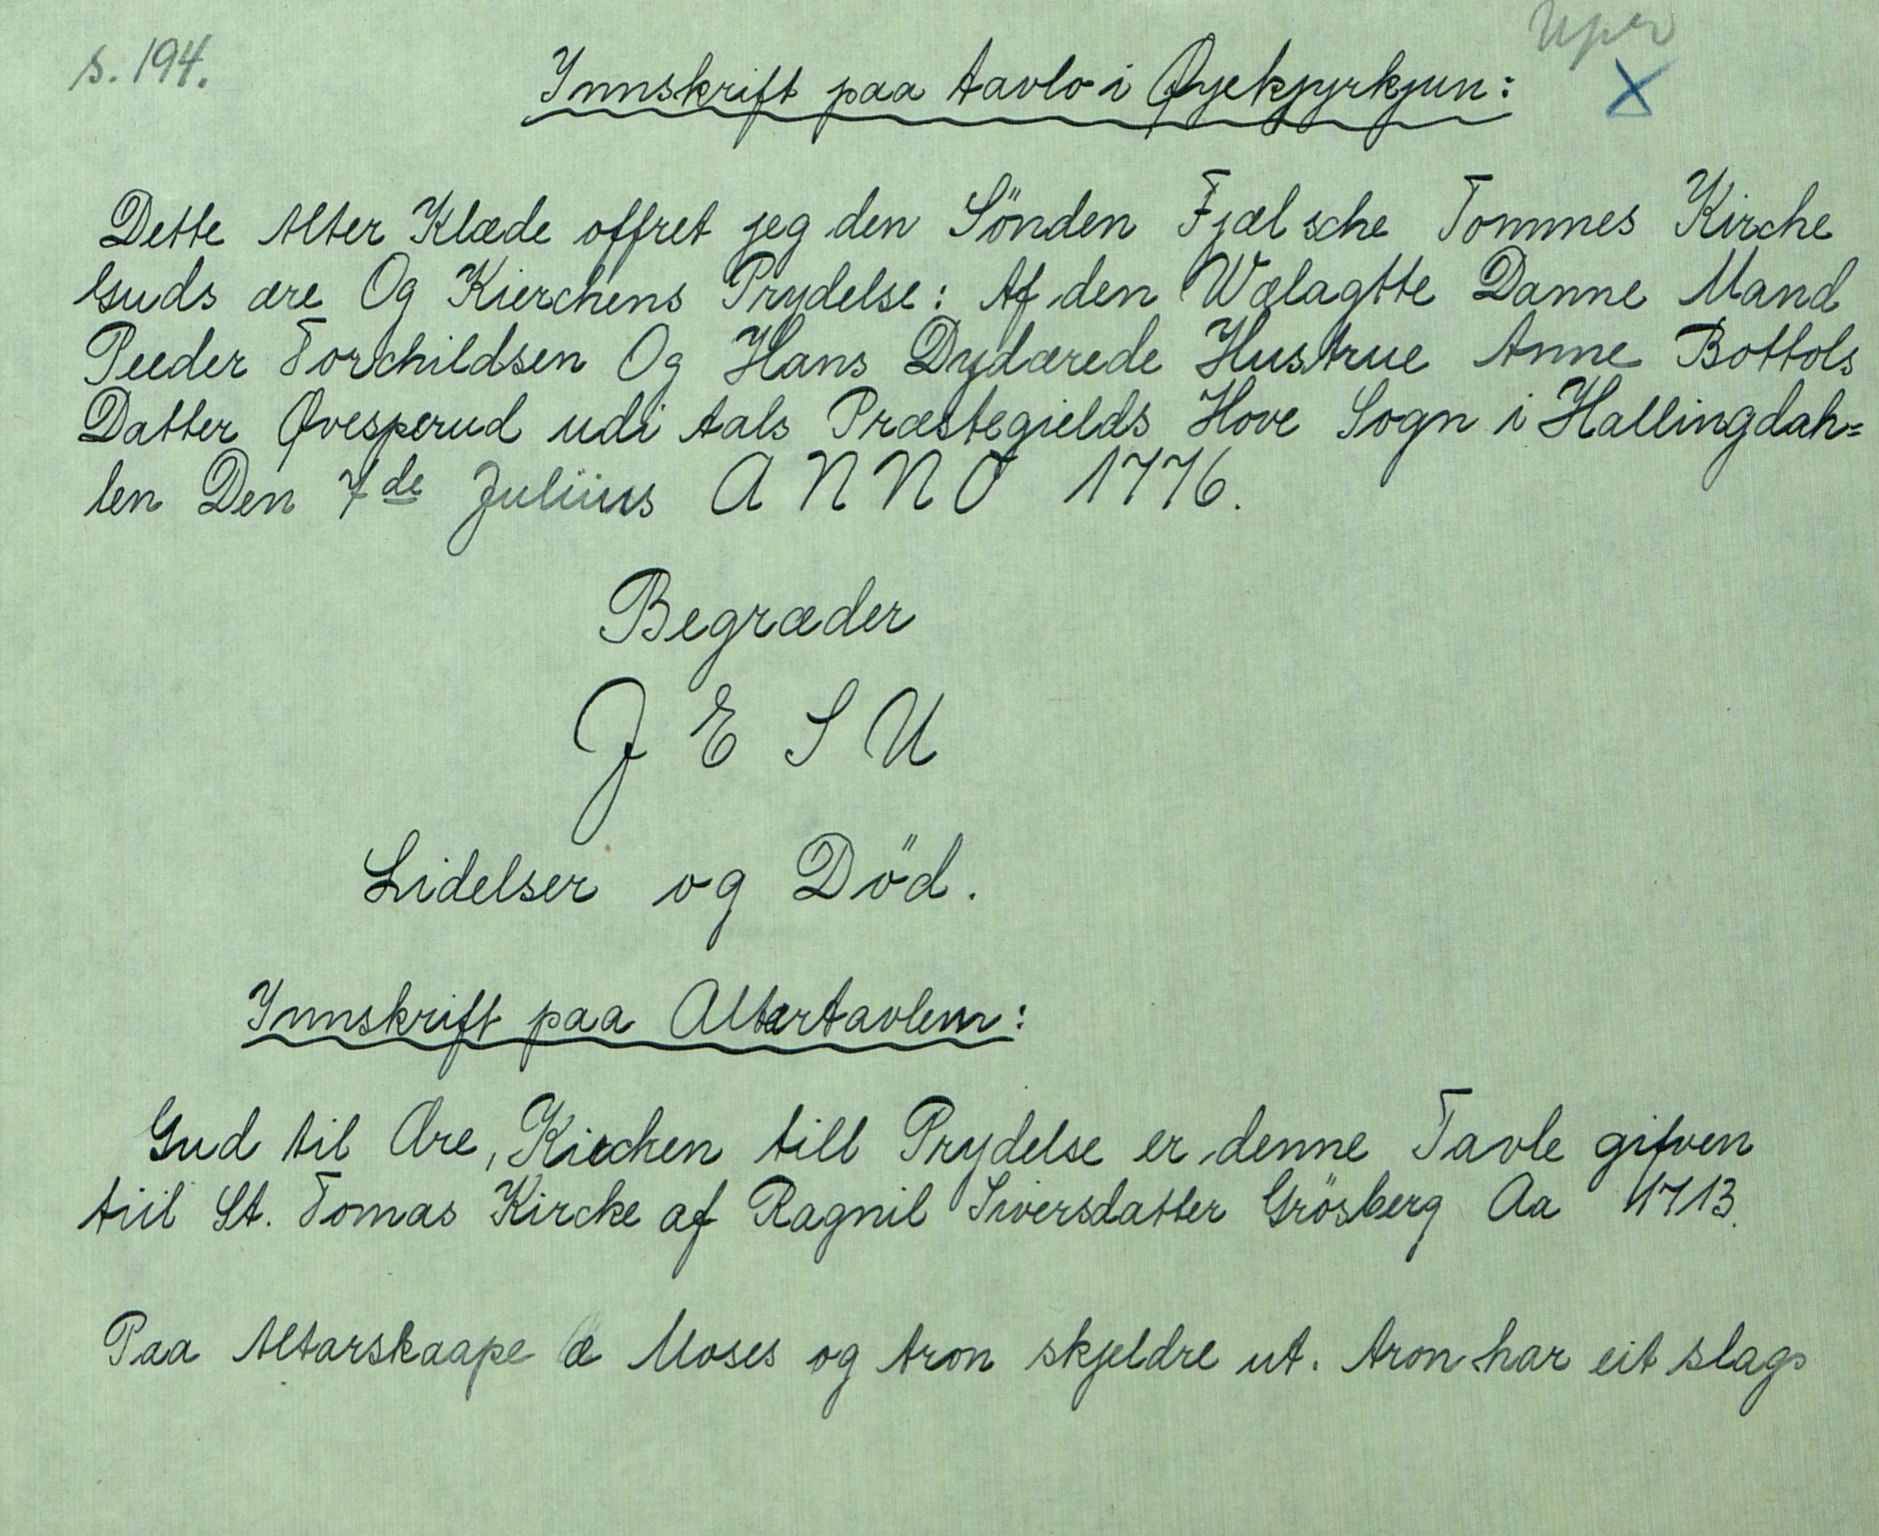 s. 194.
Innskrift paa tavlo i Øyekjyrkjun:
X
Dette Alter Klæde offret jeg den Sönden Fjælsche Tommes Kirche
Guds ære Og Kierchens Prydelse: Af den Wælagtte Danne Mand
Peeder Torchildsen Og Hans Dydærede Hustrue Anne Bottols
Datter Øvesperud udi Aals Præstegields Hove Sogn i Hallingdah=
len Den 7de Juliius ANNO 1776.
Begræder
JESU
Lidelser og Död.
Innskrift paa Altertavlenn:
Gud til Ære, Kirchen till Prydelse er denne Tavle gifven
tiil St. Tomas Kircke af Ragnil Siversdatter Grösberg Aa 1713.
Paa Altarskaape æ Moses og Aron skjeldre ut. Aron har eit slags